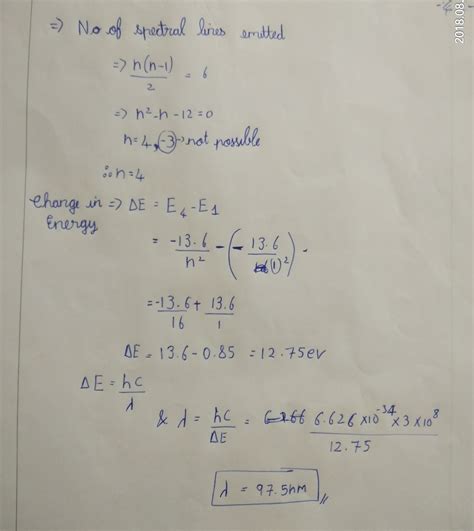 2018.08.
⇒ No of spectral lines emitted
⇒ n(n-1)/2 = 6
⇒ n² - n - 12 = 0
n = 4, -3 → not possible
∴ n = 4
Change in Energy ⇒ ΔE = E₄ - E₁
= -13.6/n² - (-13.6/(1)²)
= -13.6/16 + 13.6/1
ΔE = 13.6 - 0.85 = 12.75 ev
ΔE = hc/λ
& λ = hc/ΔE = 6.626 × 10⁻³⁴ × 3 × 10⁸/12.75
λ = 97.5nm